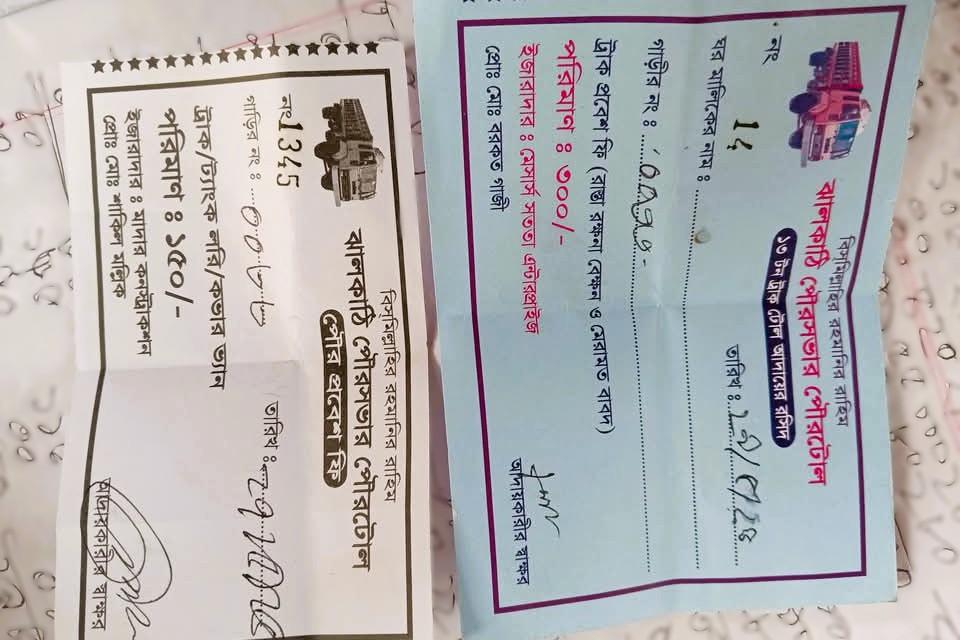 বিসমিল্লাহির রহমানির রাহিম
ঝালকাঠি পৌরসভার পৌরটোল
পৌর প্রবেশ ফি
নং 1345
তারিখ :
গাড়ির নং :
ট্রাক/ট্যাংক লরি/কভার ভ্যান
পরিমাণ : ১৫০/-
ইজারাদার : মাদার কনস্ট্রাকশন
প্রোঃ মোঃ শাকিল মল্লিক
আদায়কারীর স্বাক্ষর
বিসমিল্লাহির রহমানির রাহিম
ঝালকাঠি পৌরসভার পৌরটোল
১৩ টন ট্রাক টোল আদায়ের রশিদ
নং 14
তারিখ :
ঘর মালিকের নাম :
গাড়ীর নং :
ট্রাক প্রবেশ ফি (রাস্তা রক্ষনা বেক্ষন ও মেরামত বাবদ)
পরিমাণ : ৩০০/-
ইজারাদার : মেসার্স সততা এন্টারপ্রাইজ
প্রোঃ মোঃ বরকত গাজী
আদায়কারীর স্বাক্ষর